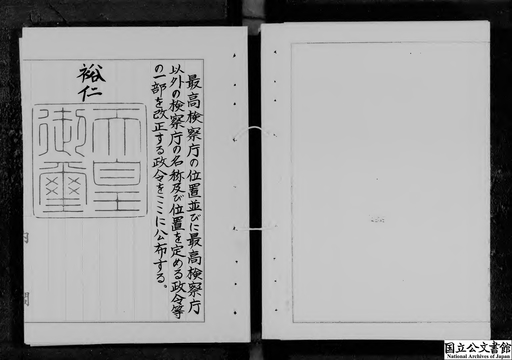 最高検察庁の位置並びに最高検察庁
以外の検察庁の名称及び位置を定める政令等
の一部を改正する政令をここに公布する。
裕仁
天皇
御璽
内閣
国立公文書館
National Archives of Japan